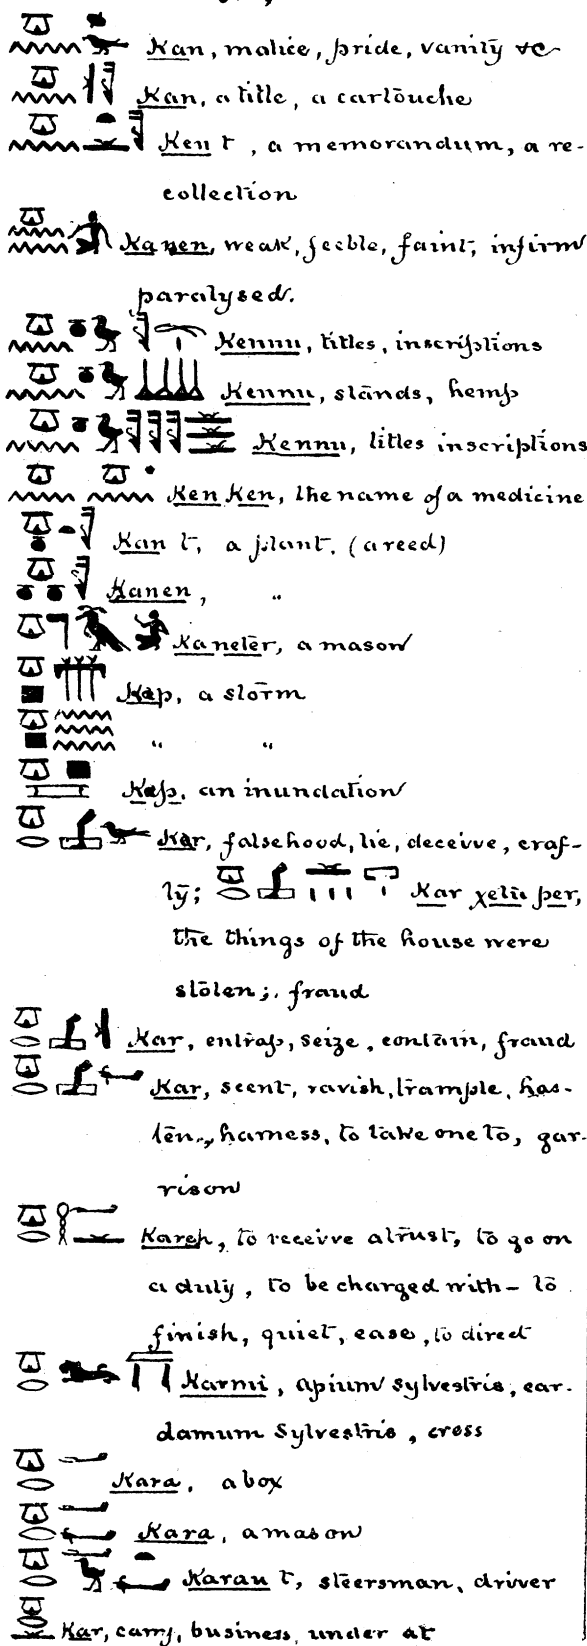 Kan, malice, pride, vanity &c
Kan, a title, a cartouche
Ken t, a memorandum, a re-
collection
Kanen, weak, feeble, faint, infirm
paralysed.
Kennu, titles, inscriptions
Kennu, stands, hemp
Kennu, titles inscriptions
Ken Ken, the name of a medicine
Kan t, a plant, (a reed)
Kanen, "
Kaneter, a mason
Kap, a storm
" "
Kap, an inundation
Kar, falsehood, lie, deceive, craf-
ty; Kar χetu per,
the things of the house were
stolen;. fraud
Kar, entrap, seize, contain, fraud
Kar, scent, ravish, trample, has-
ten, harness, to take one to, gar-
rison
Kareh, to receive a trust, to go on
a duty, to be charged with – to
finish, quiet, ease, to direct
Karmi, apium sylvestris, car-
damum sylvestris, cress
Kara, a box
Kara, a mason
Karau t, steersman, driver
Kar, carry, business, under at